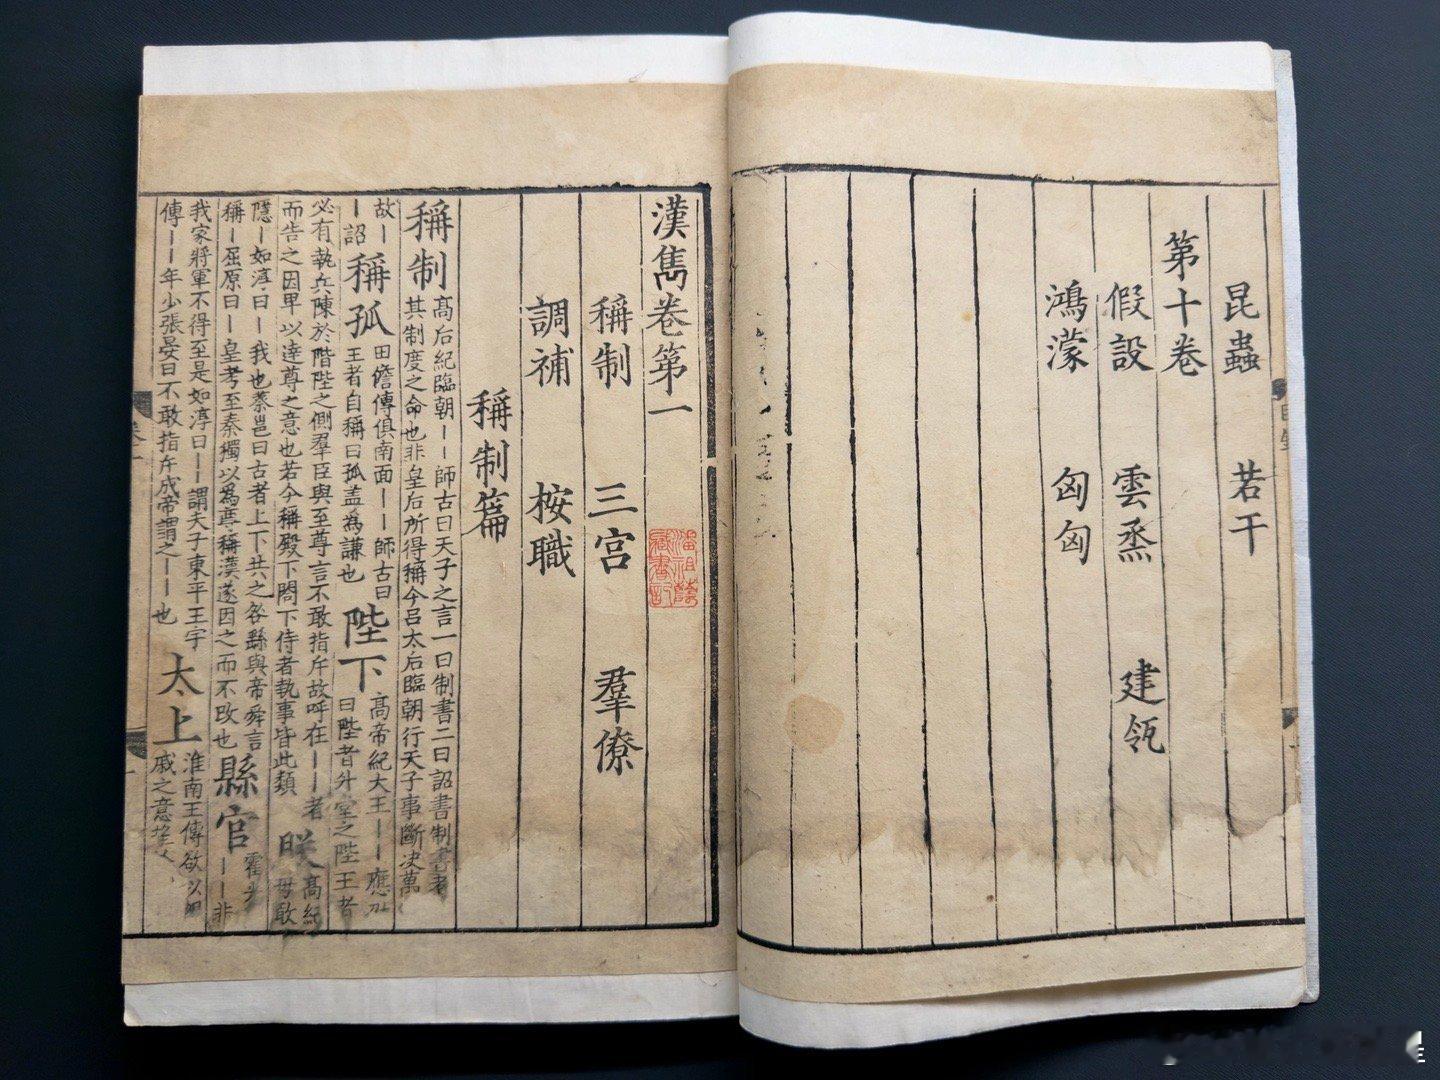 昆蟲 若干
第十卷
假設 雲烝 建瓴
鴻濛 匈匈
漢雋卷第一
潘祖蔭
藏書記
稱制 三宮 羣僚
調補 桉職
稱制篇
稱制
高后紀臨朝丨丨師古曰天子之言一曰制書二曰詔書制書者
其制度之命也非皇后所得稱今呂太后臨朝行天子事斷决萬
故丨
丨詔
稱孤
田儋傳俱南面丨丨師古曰
王者自稱曰孤盖為謙也
陛下
高帝紀大王丨丨應
曰陛者升堂之陛王者
必有執兵陳於階陛之側羣臣與至尊言不敢指斥故呼在丨丨者
而告之因卑以達尊之意也若今稱殿下閤下侍者執事皆此類
朕
高紀
毋敢
隱丨如淳曰丨我也蔡邕曰古者上下共之咎繇與帝舜言
稱丨屈原曰丨皇考至秦獨以為尊稱漢遂因之而不改也
縣官
霍光
丨丨非
我家將軍不得至是如淳曰丨丨謂天子東平王宇
傳丨丨年少張晏曰不敢指斥成帝謂之丨丨也
太上
淮南王傳欲以
戚之意